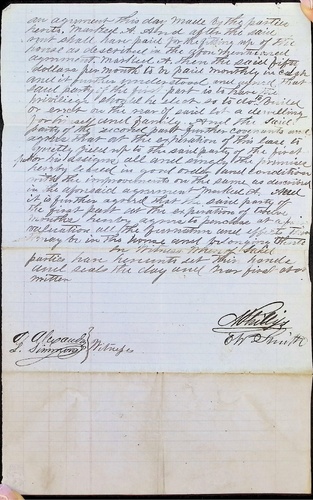 an agrument this day made by the parties
hereto, Marked A. And after the said
rent shall have paid for the fitting up of the
house as described in the above mentioned
agrument, Marked A, then the said fifty
dollars per month to be paid monthly in cash
and it further understood and agreed that
said party of the first part is to have the
priviliege should he elect so to do to build
or erect on the said lot a dwelling
for himself and family. And the said
party of the second part further covenants and
agrees that at the expiration of this lease to
quietly yield up to the said party of the first
part or his assigns, all and singly the premises
hereby leased in good order and condition
with the improvements on the same as described
in the aforesaid agrument Marked A. And
it is further agreed that the said party of
the first part at the expiration of twelve
months hereby agrees to purchase at a
valuation all the furniture and effects that
may be in this house and belonging thereto
In Witness Whereof Said
parties have hereunto set this hands
and seals the day and year first above
written
J. Alexander
L. Simmons
Witnesses
Smith